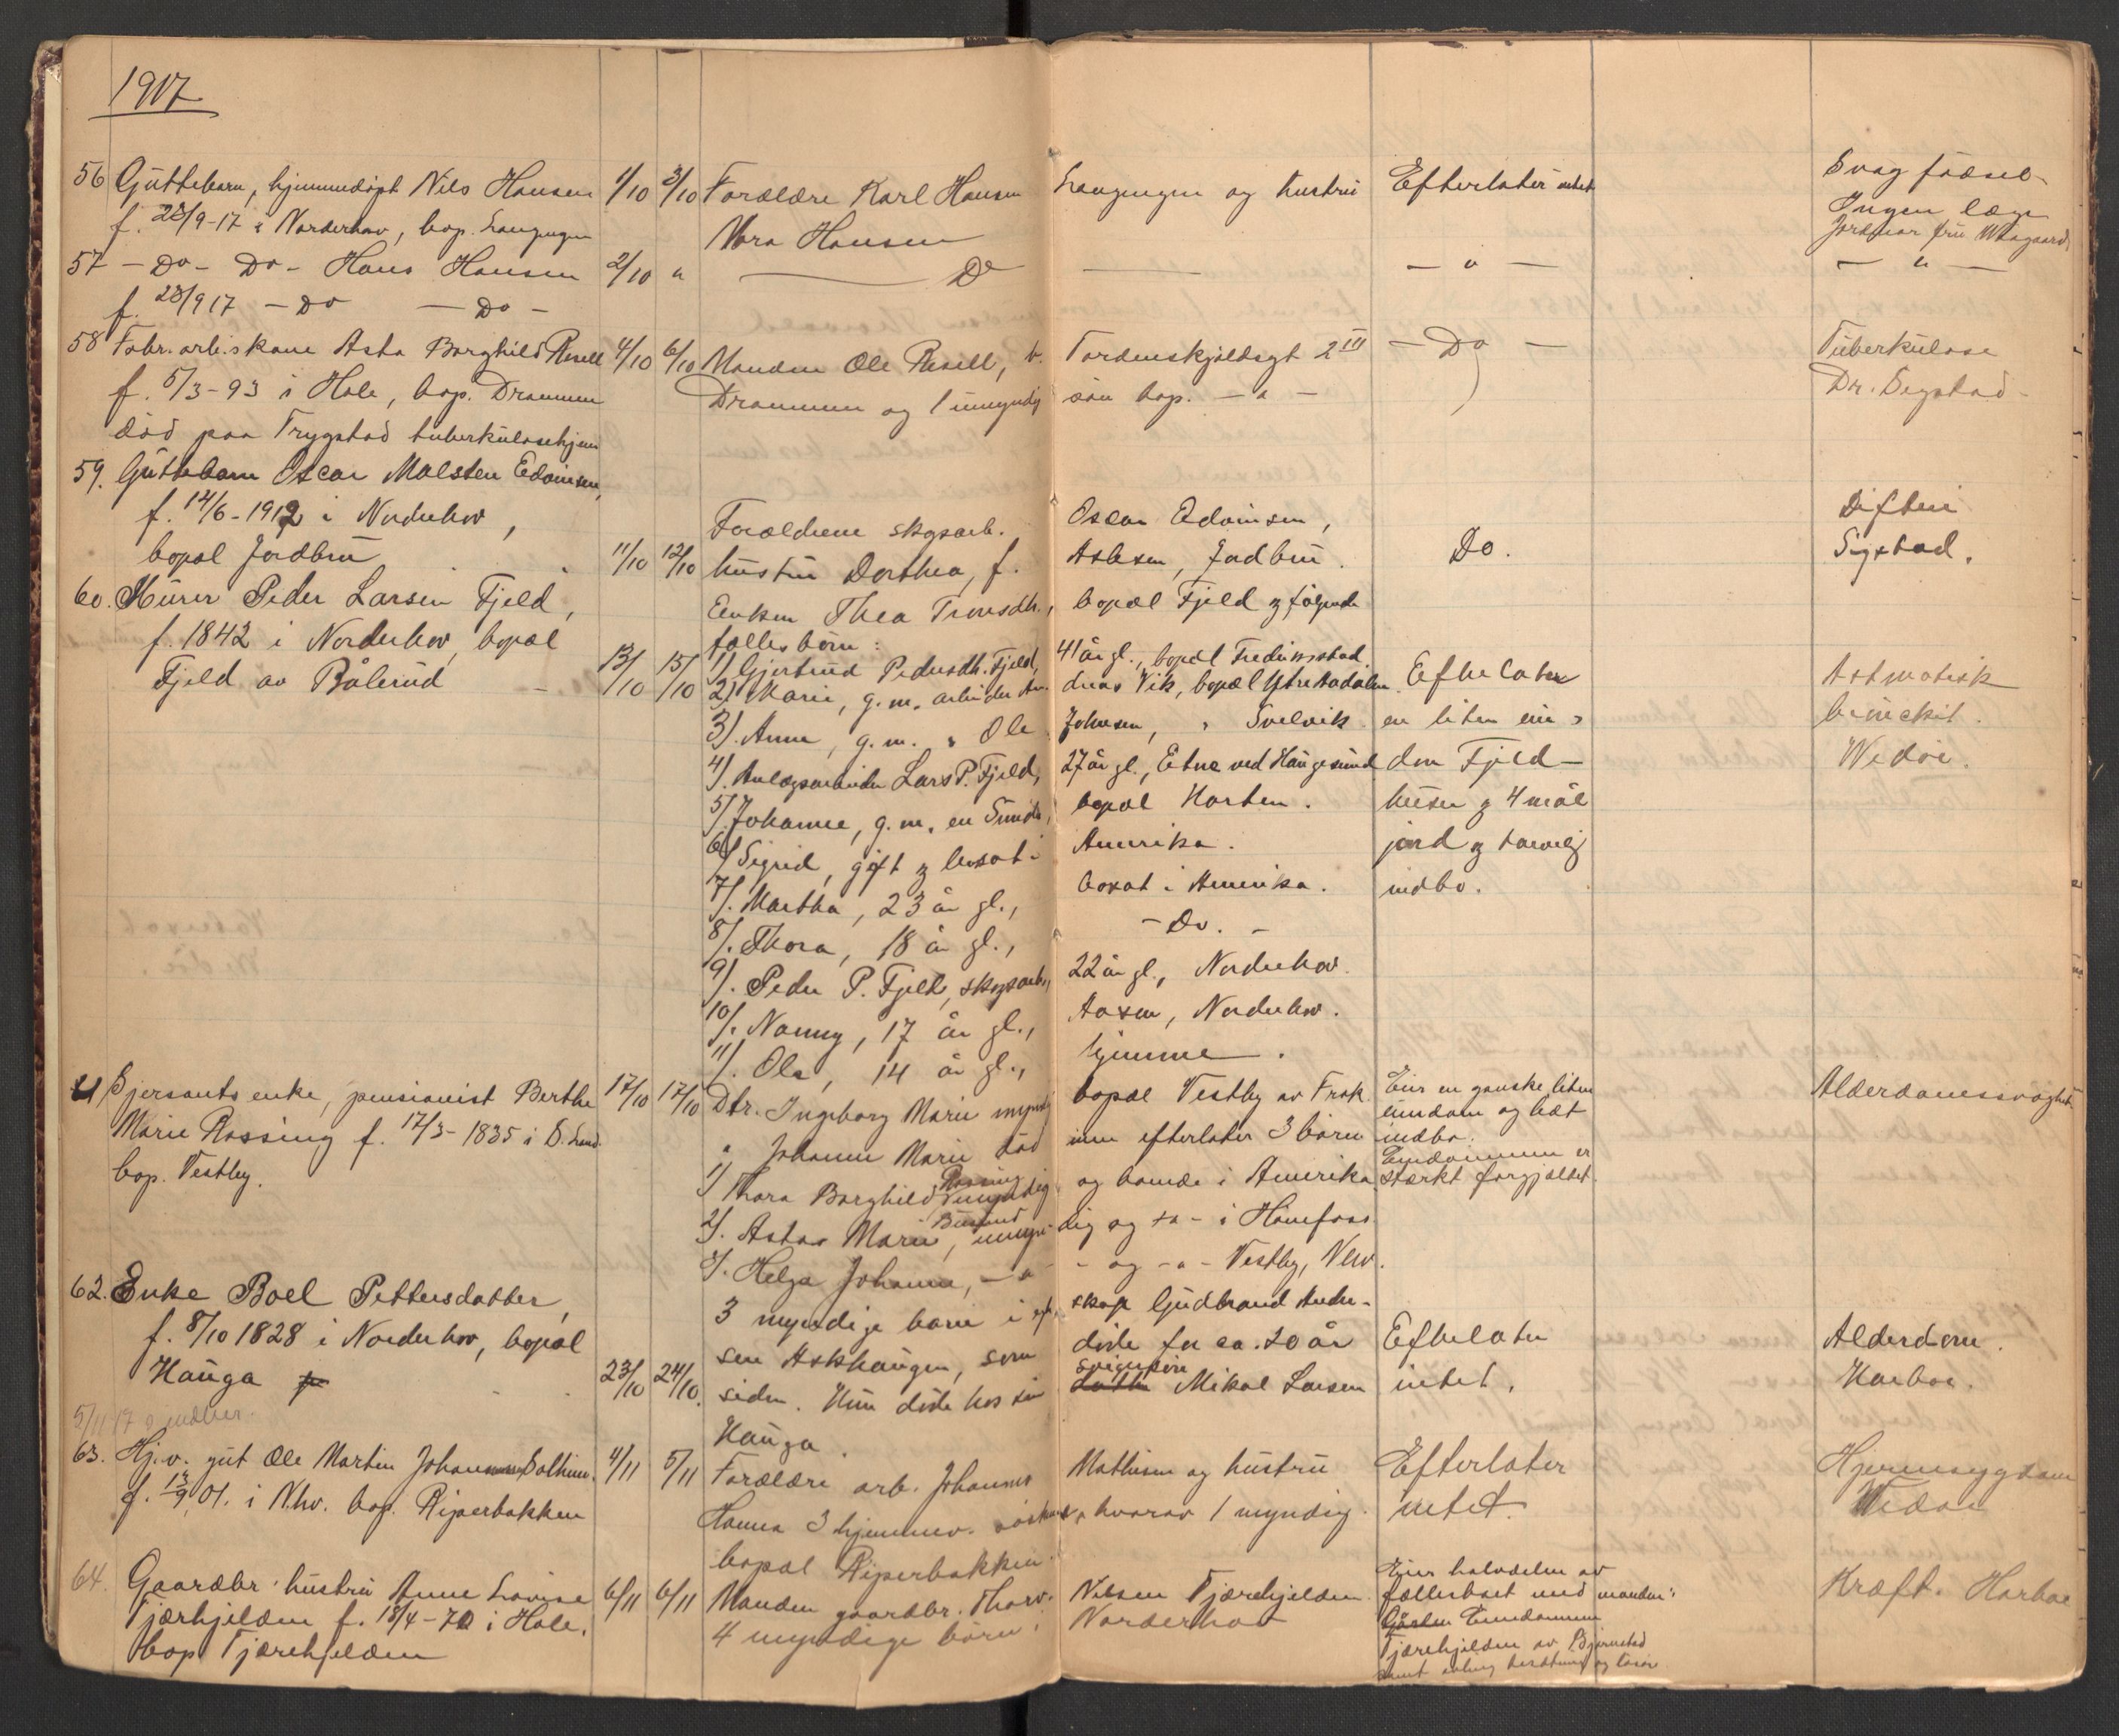 1917
56 Guttebarn, hjemmedöpt Nils Hansen 1/10 3/10 Forældre Karl Hansen Langengen og hustru Efterlater intet Svag födsel
f. 28/9-17 i Norderhov, bop. Langengen Mora Hansen Ingen læge
Jordmor fru Waagaard
57 - Do - Do - Hans Hansen 2/10 " Do - " - - " -
f. 28/9 17 - Do - Do -
58 Fabr. arb.skone Asta Borghild Resell 4/10 6/10 Manden Ole Resell, b. Tordenskjoldsgt 2 III - Do - Tuberkulose
f. 5/3-93 i Hole, bop. Drammen Drammen og 1 umyndig sön bop. - " - Dr. Sigstad
död paa Trygstad tuberkulosehjem
59. Guttebarn Oscar Malsten Edvinsen,
f. 14/6-1912 i Norderhov, Forældrene skogsarb. Oscar Edvinsen, Difteri
bopæl Jordbru 11/10 12/10 hustru Dorthea, f. Aslesen, Jordbru. Do. Sigstad.
60. Kurer Peder Larsen Fjeld, Enken Thea Tronsdtr., bopæl Fjeld og følgende
f. 1842 i Norderhov, bopæl fælles børn:
Fjeld av Bålerud 13/10 15/10 1) Gjertrud Pedersdtr. Fjeld, 41 år gl., bopæl Fredriksstad
2) Marie, g.m. arbeider An- dreas Vik, bopæl Ytre Aadalen Efterlater Astmatisk
3). Anna, g.m. " Ole Johnsen, " Svelvik en liten eien- bronckit.
4). Anlægsarbeider Lars P. Fjeld, 27 år gl., Etne ved Haugesund dom Fjeld- Wedøe.
5) Johanne, g.m. en Smids, bopæl Horten. huser og 4 mål
6) Sigrid, gift og bosat i Amerika. jord og tarvelig
7). Martha, 23 år gl., bosat i Amerika. indbo.
8). Thora, 18 år gl., - Do. -
9). Peder P. Fjeld, skogsarb., 22 år gl., Norderhov.
10). Nanny, 17 år gl., Aasen, Norderhov.
11). Ole, 14 år gl., hjemme.
61 Sjersants enke, pensionist Berthe 17/10 17/10 Dtr. Ingeborg Marie myndig bopæl Vestby av Frok Eier en ganske liten Alderdomssvaghet
Marie Rossing f. 17/3-1835 i S. Land " Johanne Marie död men efterlater 3 börn eiendom og litt indbo.
bop. Vestby. 1) Thora Borghild Rossing myndig og boende i Amerika Eiendommen er stærkt forgjældet.
2). Astar Marie Buelund, umyn- dig og - " - i Hönefoss
3). Helga Johanne, - " - - og - " - Vestby, Nhv.
62. Enke Boel Pettersdatter, 3 myndige barn i egt. skap Gudbrand Ander-
f. 8/10 1828 i Norderhov, bopæl sen Askhaugen, som døde for ca. 20 år Efterlater Alderdom.
Hauga 23/10 24/10. siden. Hun døde hos sin svigersön Mikal Larsen intet. Harboe.
Hauga.
5/11 17
63. Hj.v. gut Ole Martin Johannes Solheim. 4/11 5/11 Forældre arb. Johannes Mathisen og hustru Efterlater Hjernesygdom
f. 13/9 01. i Nhv. bop. Riperbakken Hanna 3 hjemmev. söskend, hvorav 1 myndig. intet. Wedøe
bopæl Riperbakken
64. Gaardbr. hustru Anne Lovise 6/11 6/11 Manden gaardbr. Thorv. Nilsen Tjærehjelden Eier halvdelen av Kræft. Harboe
Tjærhjelden f. 18/4-70 i Hole, 4 myndige börn. Norderhov fællesboet med manden:
bop Tjærehjelden Gården Eiendommen
Tjærehjelden av Bjørnstad
samt avling besætning og lösöre